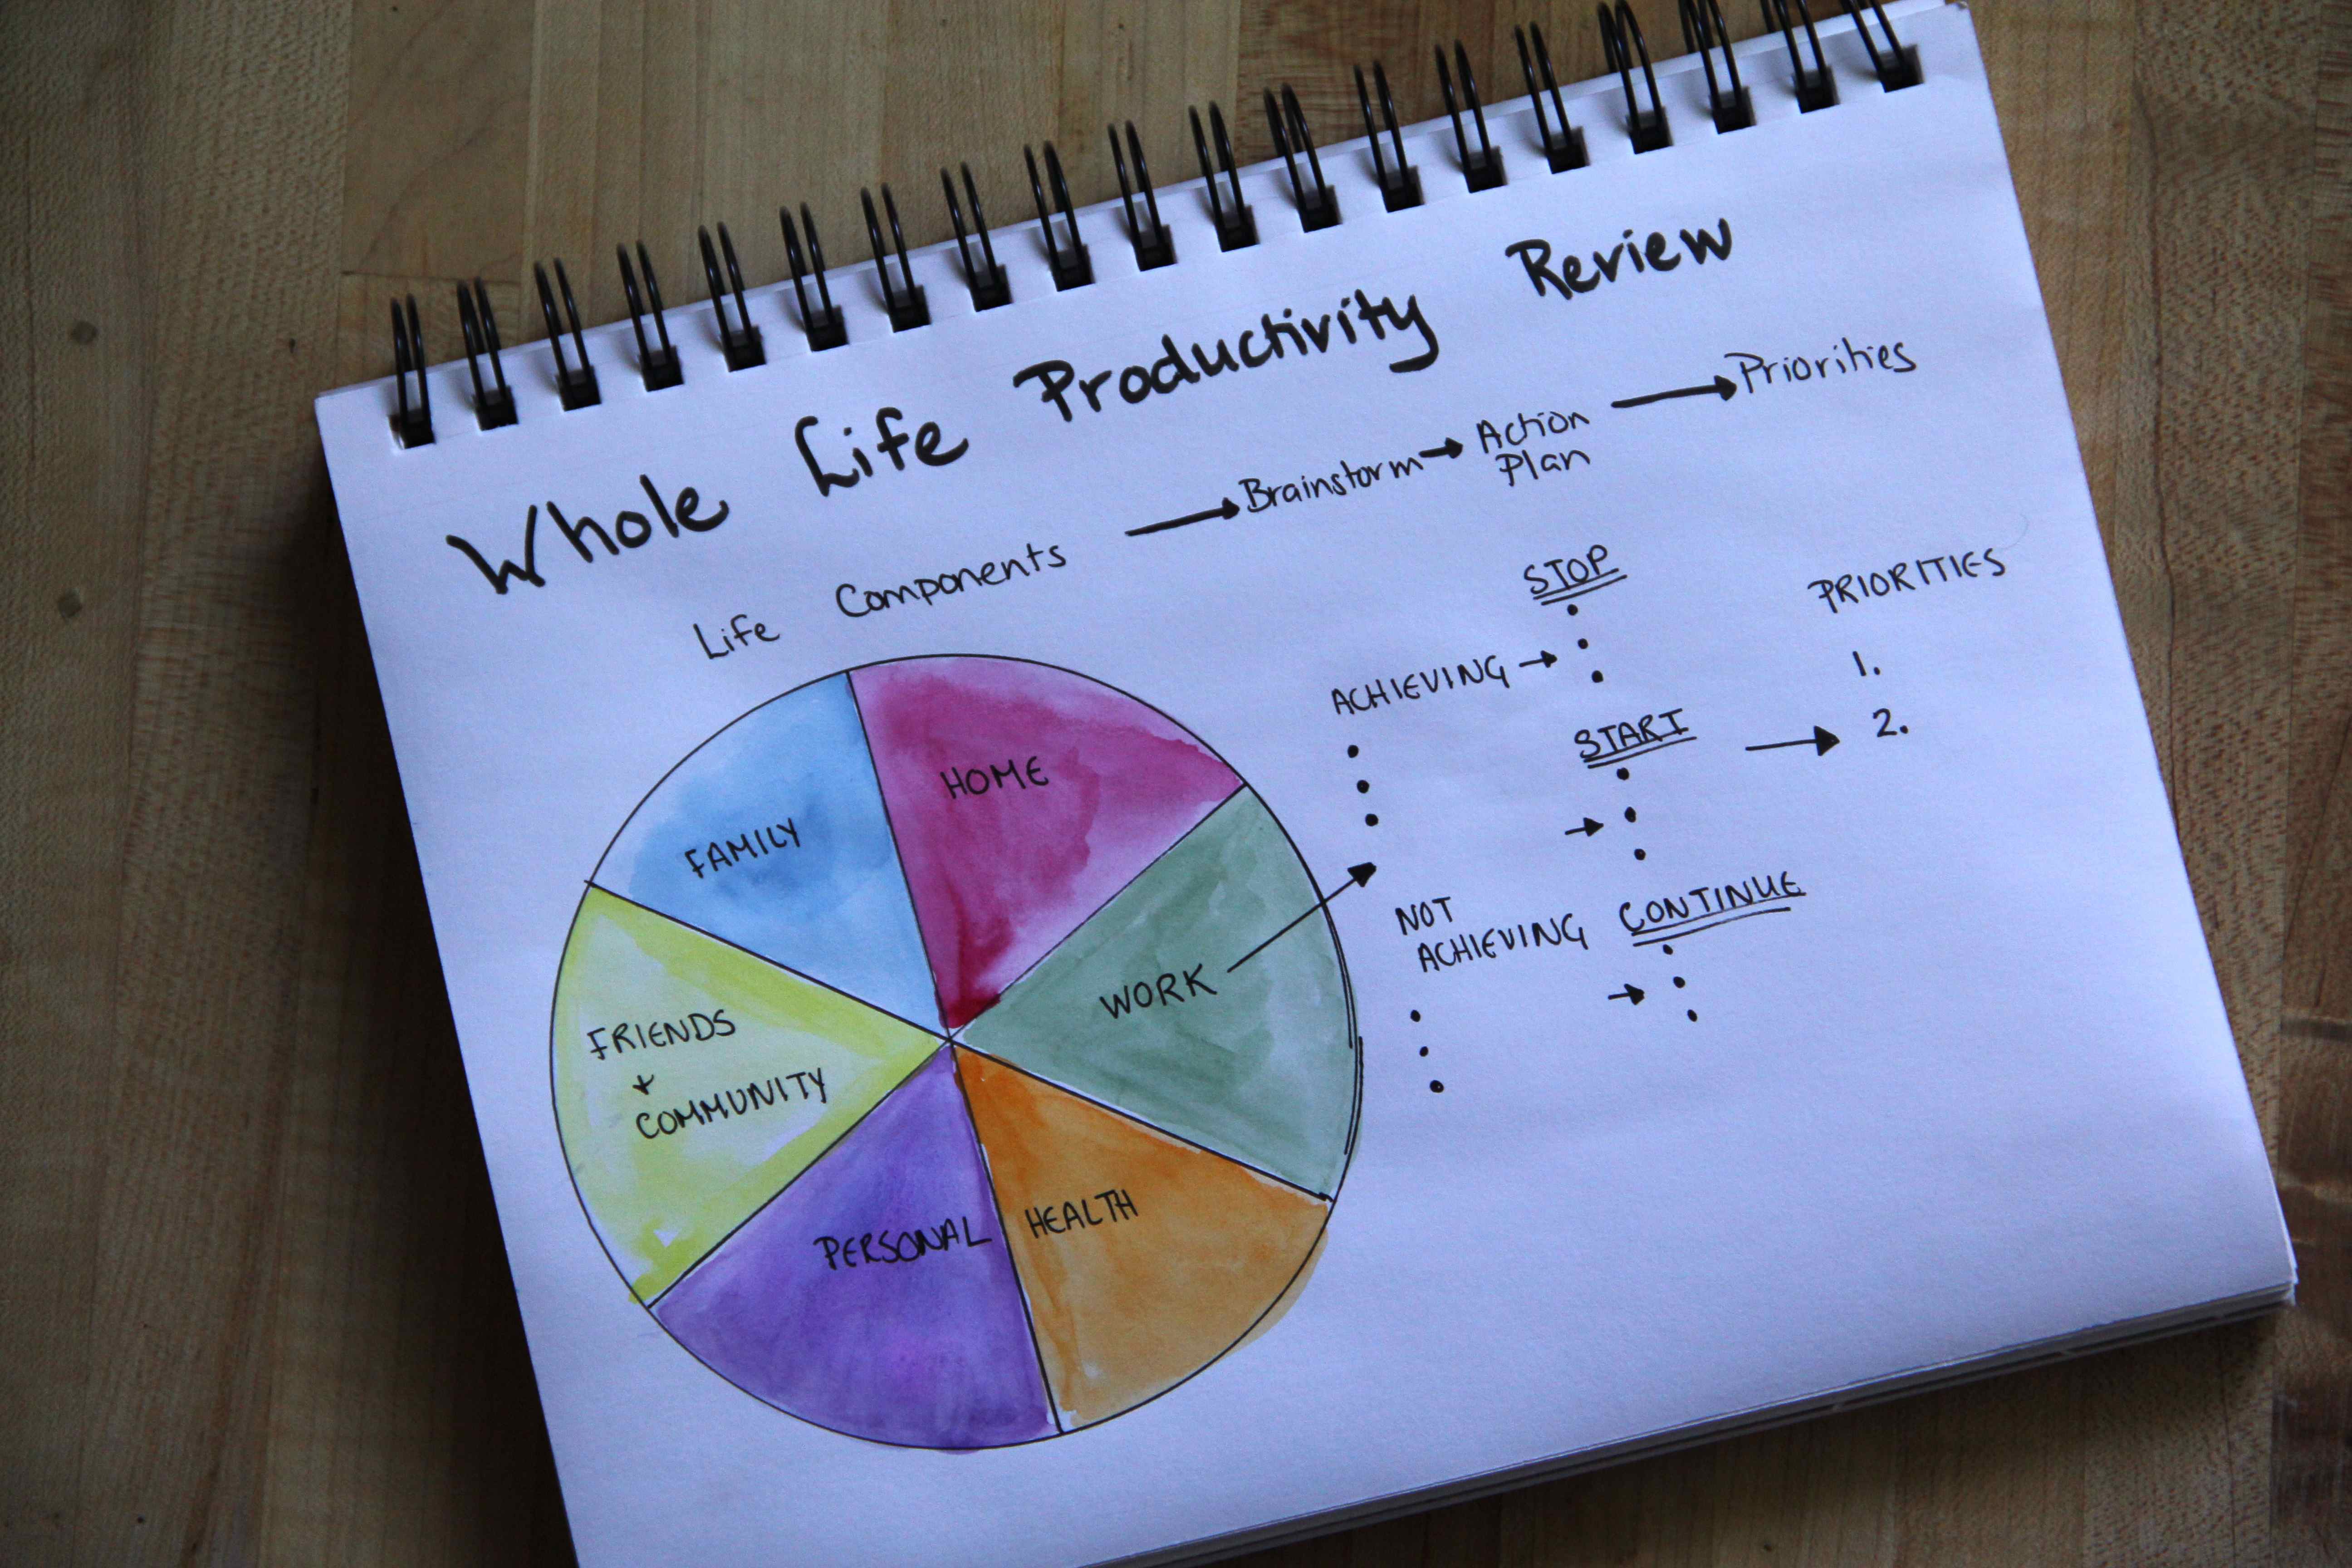 Whole Life Productivity Review
Life Components → Brainstorm → Action Plan → Priorities
HOME
WORK
HEALTH
PERSONAL
FRIENDS
+
COMMUNITY
FAMILY
ACHIEVING →
NOT
ACHIEVING
STOP
START
CONTINUE
PRIORITIES
1.
2.